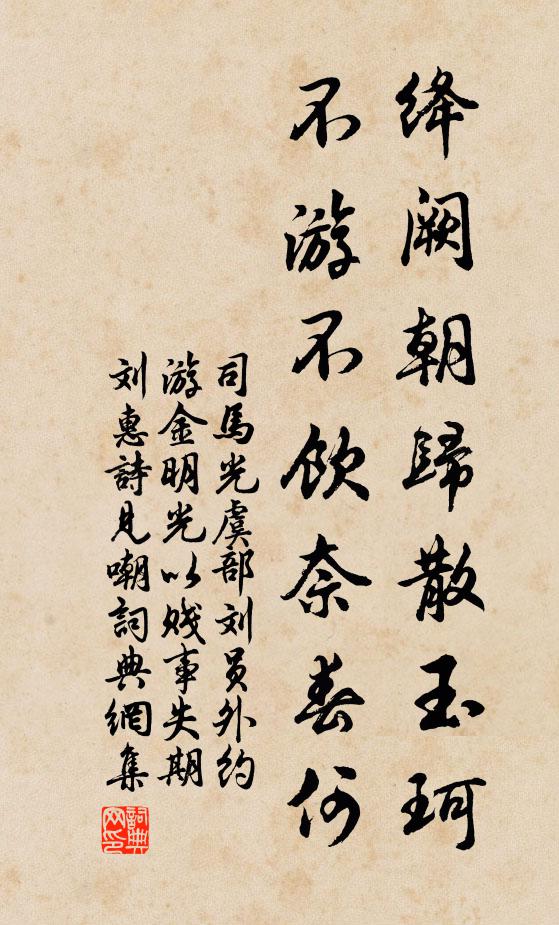 绛阙朝歸散玉珂
不游不饮奈春何
司馬光虞部刘员外约
游金明光以贱事失期
刘惠詩見嘲詞典網集
詞典
网印